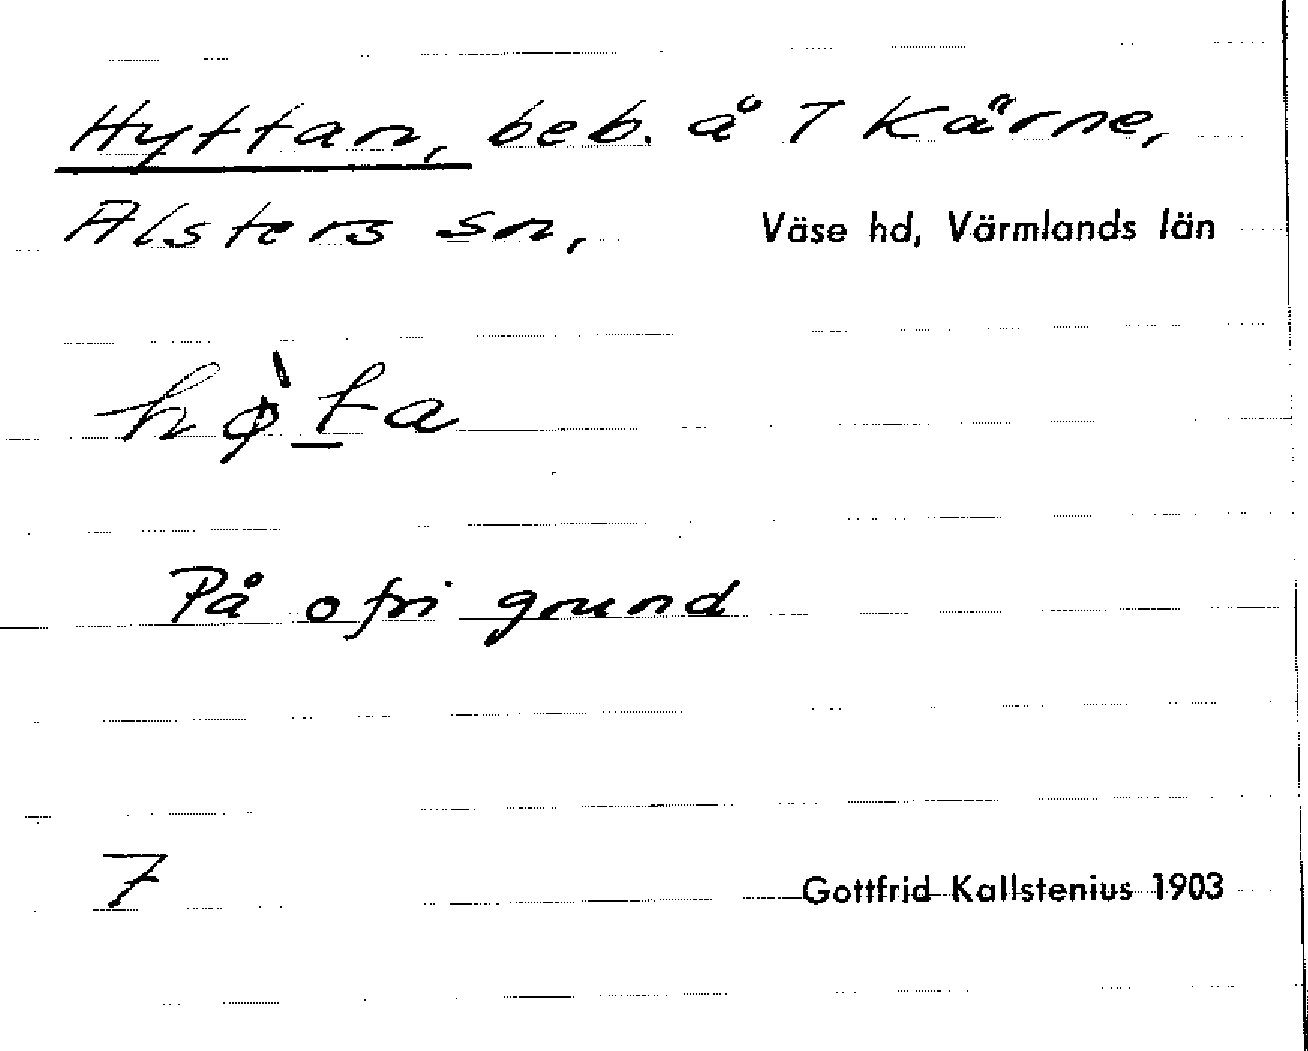 Hyttan, beb. å 7 Kärne,
Alsters sn, Väse hd, Värmlands län
hø̀ta
På ofri grund
7 Gottfrid Kallstenius 1903